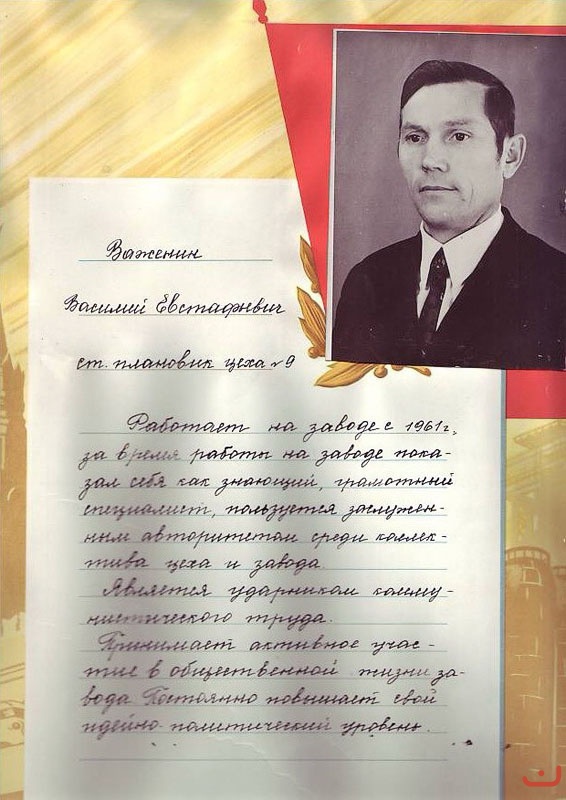 Важенин
Василий Евстафиевич
ст. плановик цеха №9
Работает на заводе с 1961г,
за время работы на заводе пока-
зал себя как знающий, грамотный
специалист, пользуется заслужен-
ным авторитетом среди коллек-
тива цеха и завода.
Является ударником комму-
нистического труда.
Принимает активное учас-
тие в общественной жизни за-
вода. Постоянно повышает свой
идейно-политический уровень.